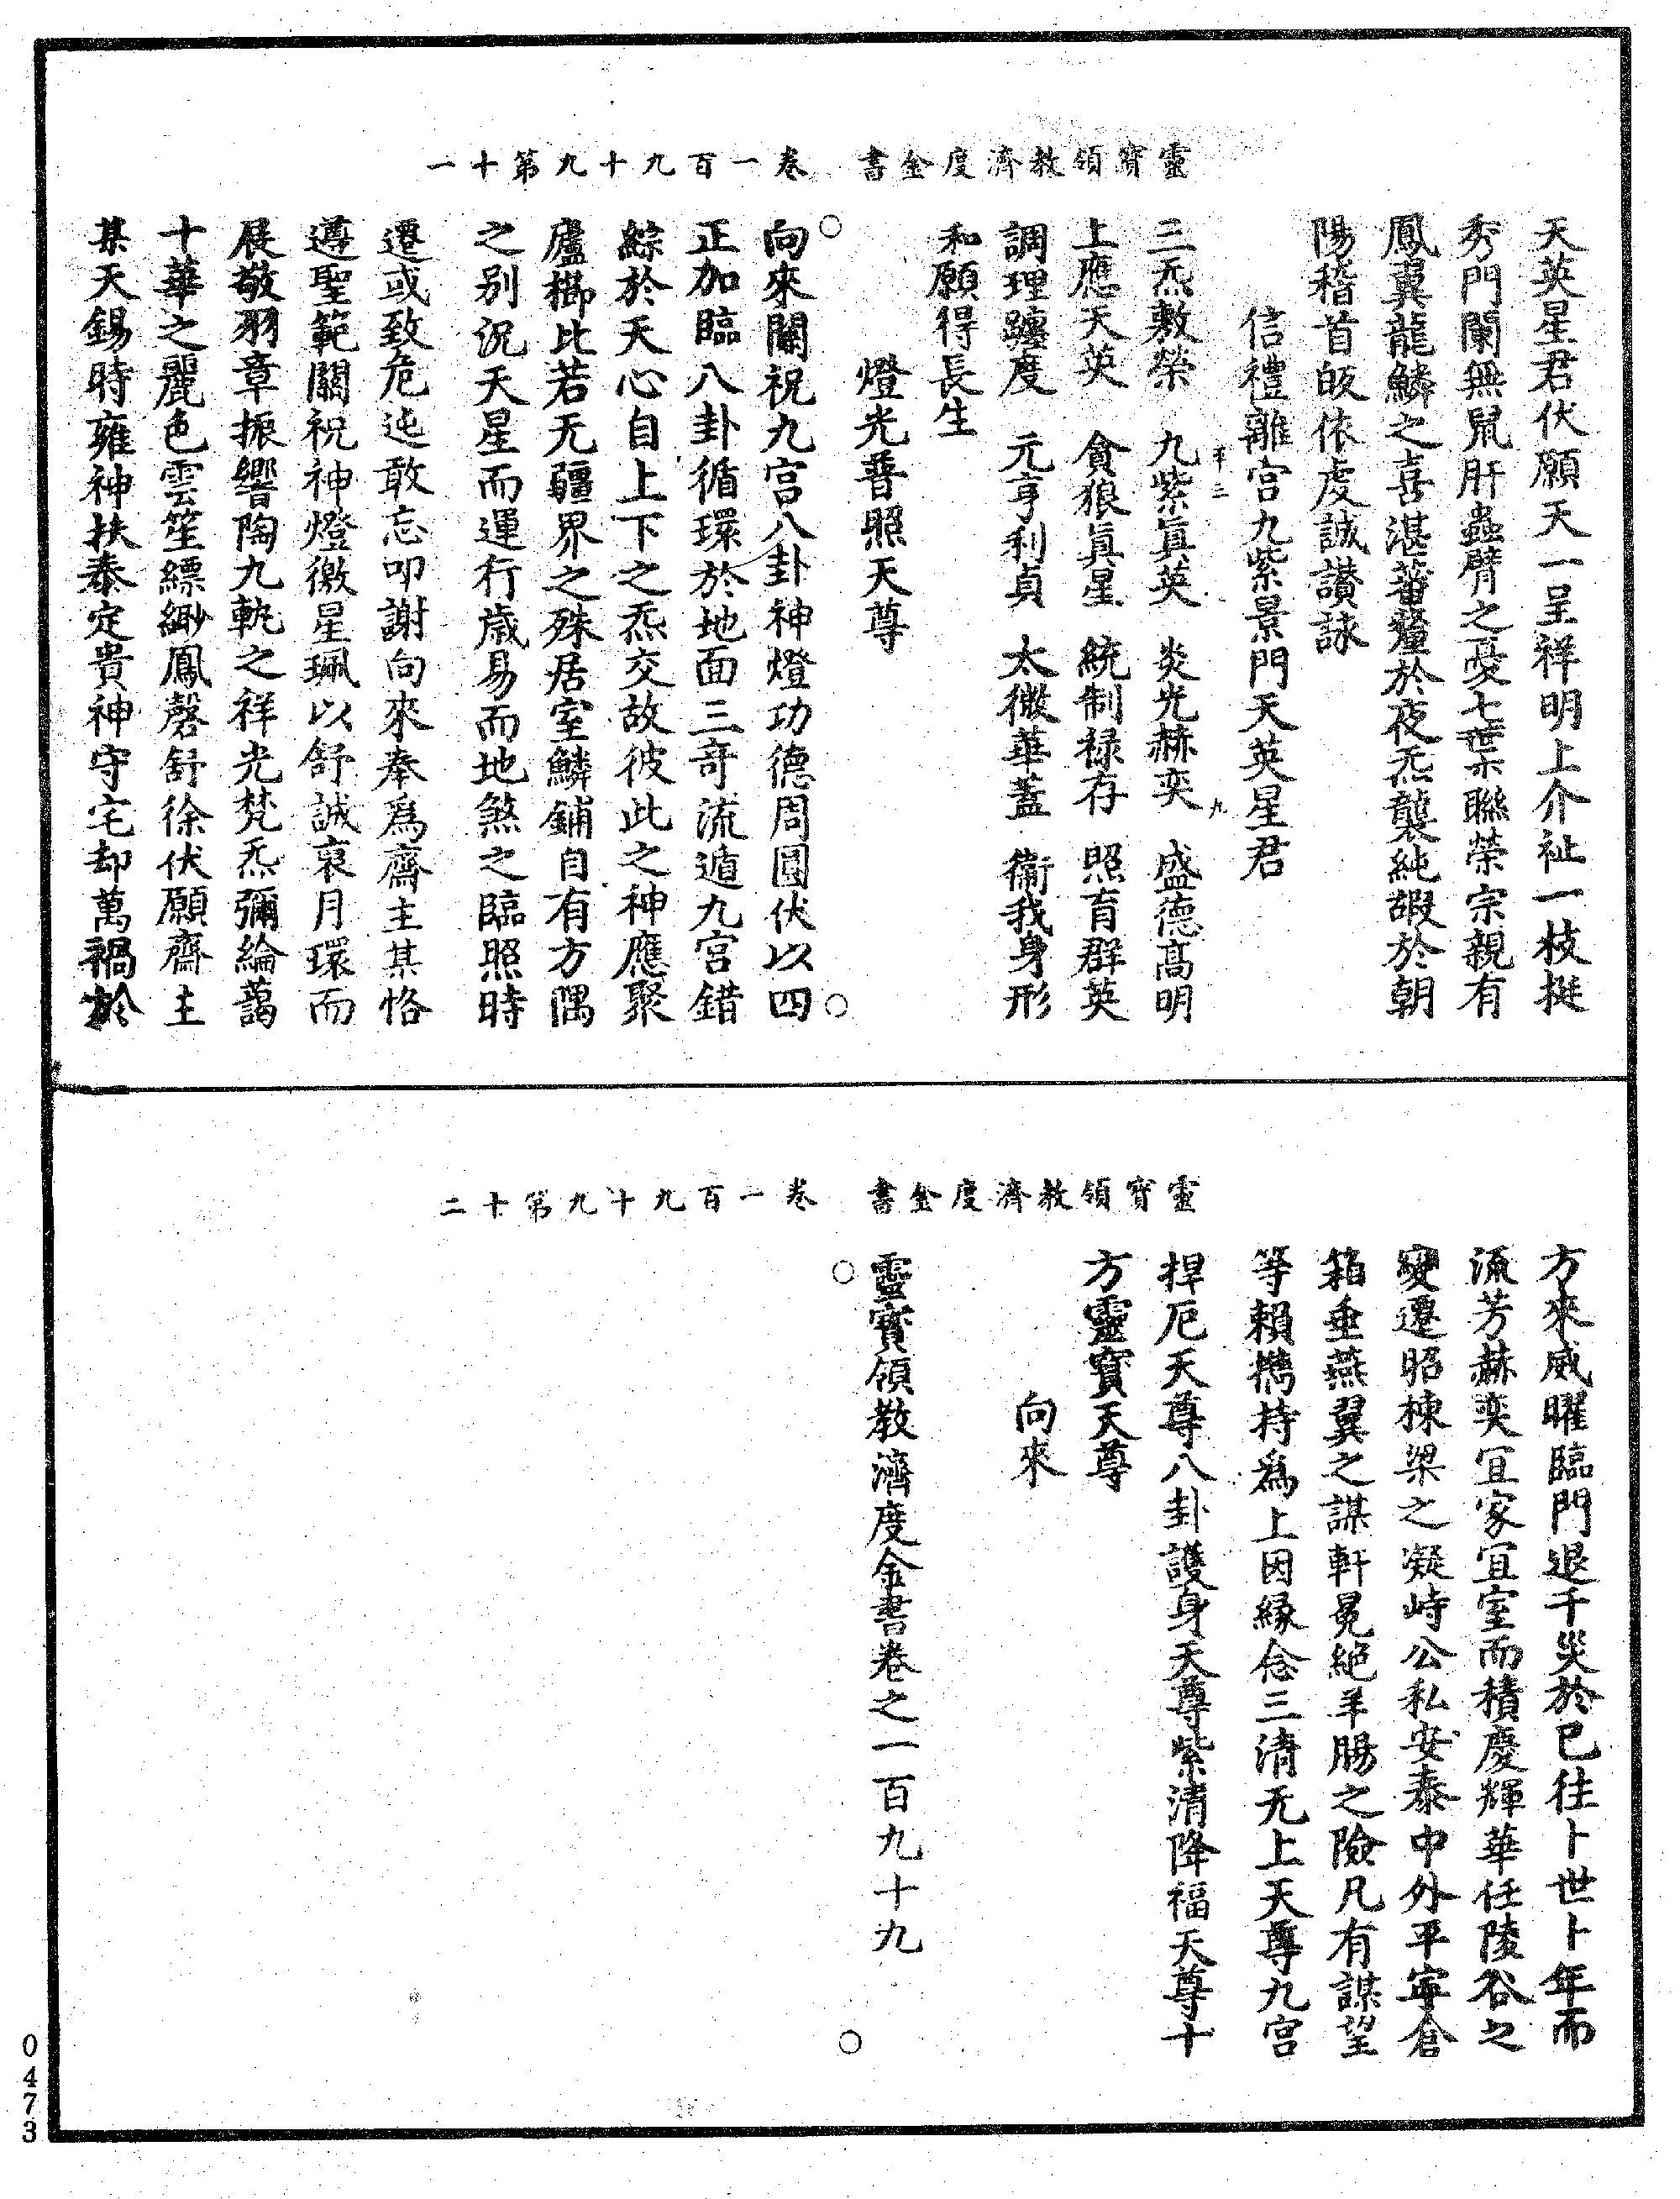 靈寶領教濟度金書　卷一百九十九第十一
天英星君伏願天一呈祥明上介祉一枝挺
秀門闌無鼠肝蟲臂之憂七葉聯榮宗親有
鳳翼龍鱗之喜湛蕃釐於夜炁襲純嘏於朝
陽稽首皈依虔誠讚詠
信禮離宮九紫景門天英星君
三炁敷榮　九紫真英　炎光赫奕　盛德高明
上應天英　貪狼真星　統制祿存　照育群英
調理躔度　元亨利貞　太微華蓋　衛我身形
和願得長生
燈光普照天尊
向來關祝九宮八卦神燈功德周圓伏以四
正加臨八卦循環於地面三奇流遁九宮錯
綜於天心自上下之炁交故彼此之神應聚
廬櫛比若无疆界之殊居室鱗鋪自有方隅
之別況天星而運行歲易而地煞之臨照時
遷或致危迍敢忘叩謝向來奉為齋主某恪
遵聖範關祝神燈徼星珮以舒誠裒月環而
展敬羽章振響陶九執之祥光梵炁彌綸藹
十華之麗色雲笙縹緲鳳磬舒徐伏願齋主
某天錫時雍神扶泰定貴神守宅却萬禍於
靈寶領教濟度金書　卷一百九十九第十二
方來威曜臨門退千災於已往卜世卜年而
流芳赫奕宜家宜室而積慶輝華任陵谷之
變遷昭棟梁之凝峙公私安泰中外平寧倉
箱垂燕翼之謀軒冕絕羊腸之險凡有謀望
等賴擕持為上因緣念三清无上天尊九宮
捍厄天尊八卦護身天尊紫清降福天尊十
方靈寶天尊
向來
靈寶領教濟度金書卷之一百九十九
0473